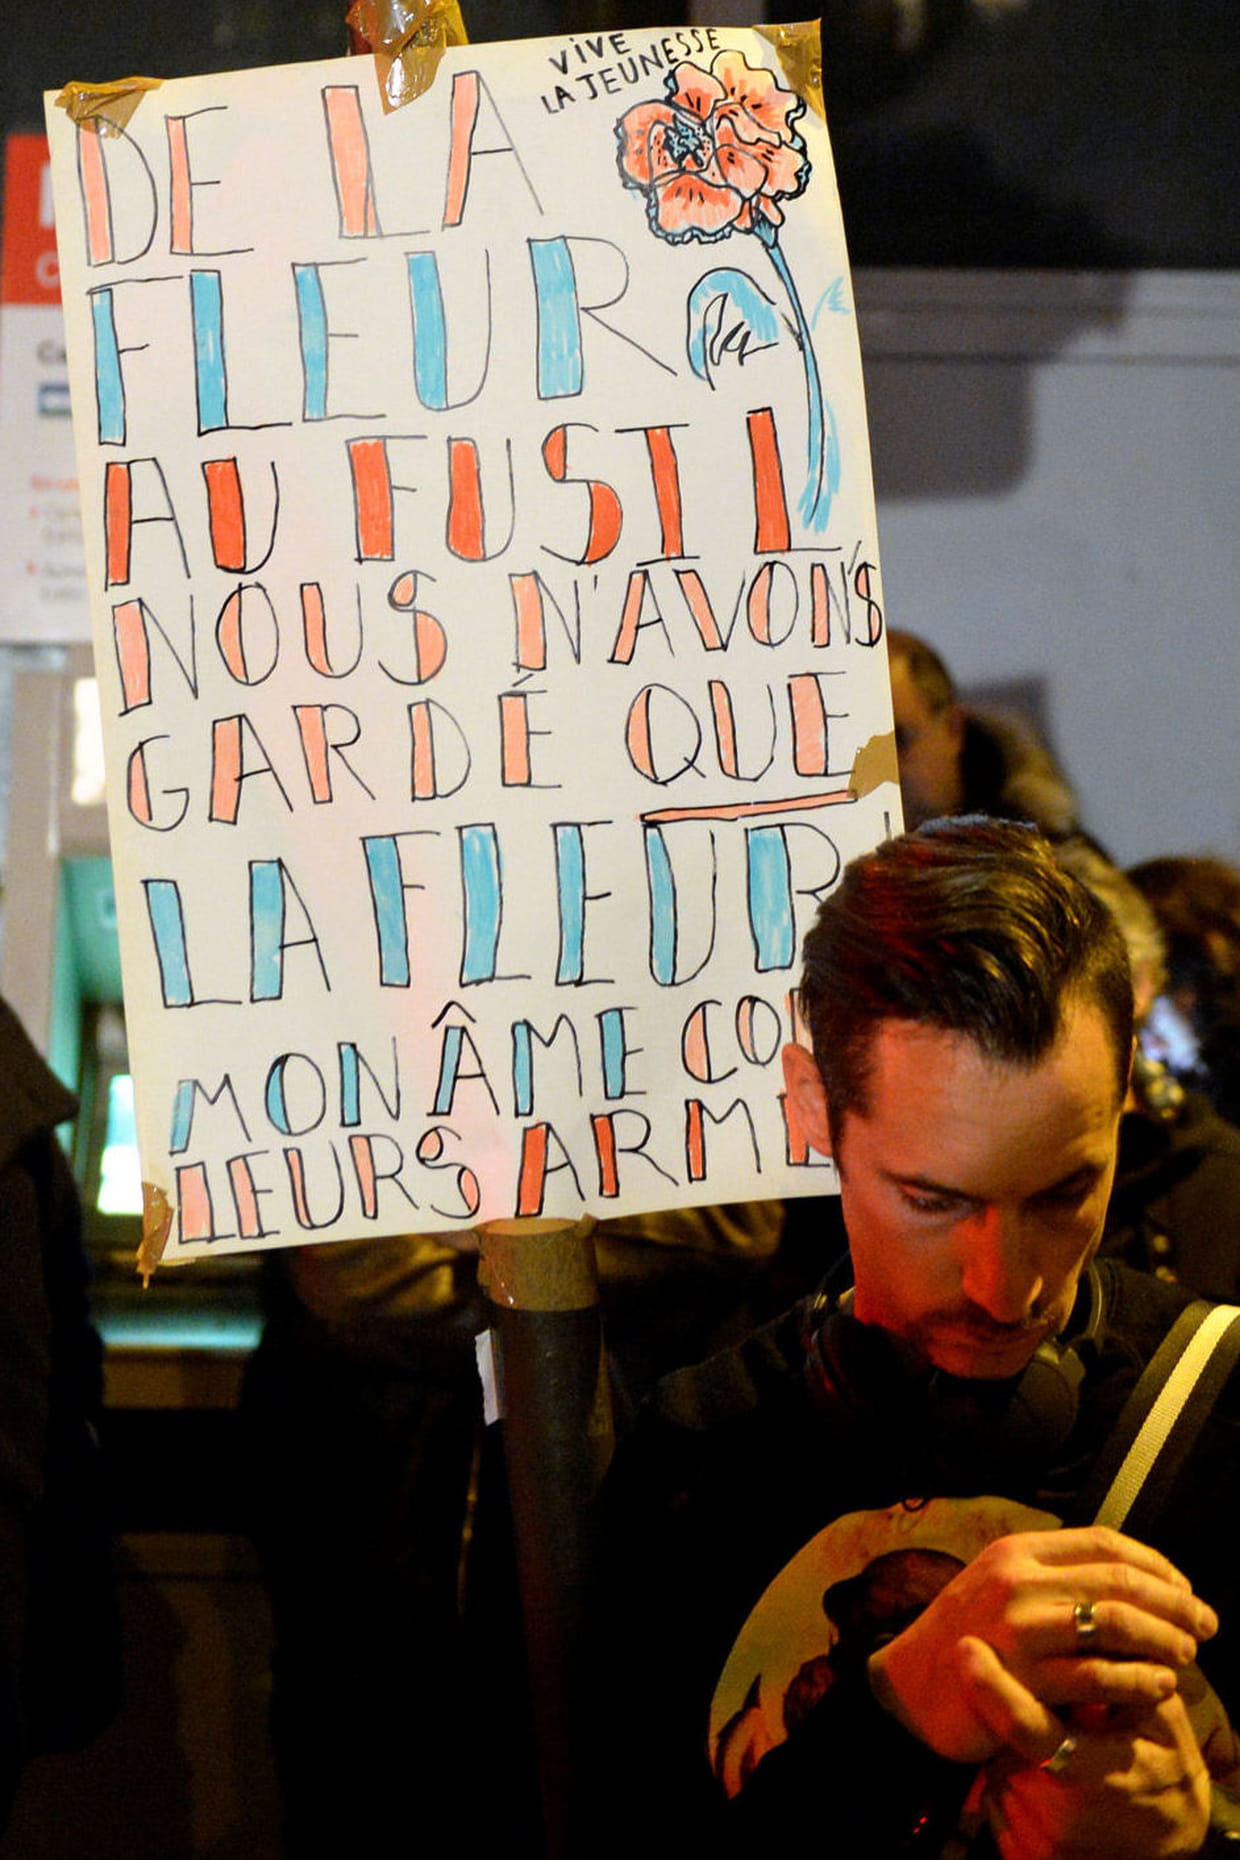 VIVE
LA JEUNESSE
DE LA
FLEUR
AU FUSIL
NOUS N'AVONS
GARDÉ QUE
LA FLEUR!
MON ÂME
LEURS